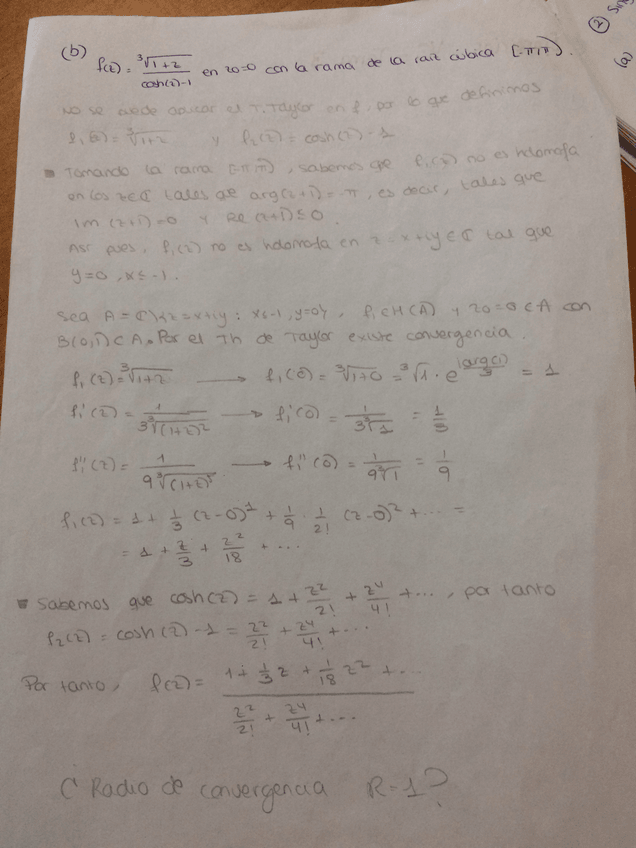 (b) f(z) = ∛(1+z) / (cosh(z)-1) en z0=0 con la rama de la raiz cúbica [-π,π).
No se puede aplicar el T. Taylor en f, por lo que definimos
f₁(z) = ∛(1+z) y f₂(z) = cosh(z) - 1
▪ Tomando la rama [-π,π), sabemos que f₁(z) no es holomofa
en los z∈ℂ tales que arg(z+1) = π, es decir, tales que
Im(z+1)=0 y Re(z+1)≤0.
Así pues, f₁(z) no es holomofa en z=x+iy∈ℂ tal que
y=0, x≤-1.
Sea A = ℂ\{z=x+iy: x≤-1, y=0}, f₁∈H(A) y z0=0∈A con
B(0,1)⊂A. Por el Th de Taylor existe convergencia.
f₁(z) = ∛(1+z) → f₁(0) = ∛(1+0) = ∛1 · e^(i arg(1)/3) = 1
f₁'(z) = 1/(3∛(1+z)²) → f₁'(0) = 1/(3∛1) = 1/3
f₁''(z) = 1/(9∛(1+z)⁵) → f₁''(0) = 1/(9∛1) = 1/9
f₁(z) = 1 + 1/3 (z-0)¹ + 1/9 · 1/2! (z-0)² + ... =
= 1 + z/3 + z²/18 + ...
▪ Sabemos que cosh(z) = 1 + z²/2! + z⁴/4! + ..., por tanto
f₂(z) = cosh(z) - 1 = z²/2! + z⁴/4! + ...
Por tanto, f(z) = (1 + 1/3 z + 1/18 z² + ...) / (z²/2! + z⁴/4! + ...)
¿Radio de convergencia R=1?
② Sin
(a)